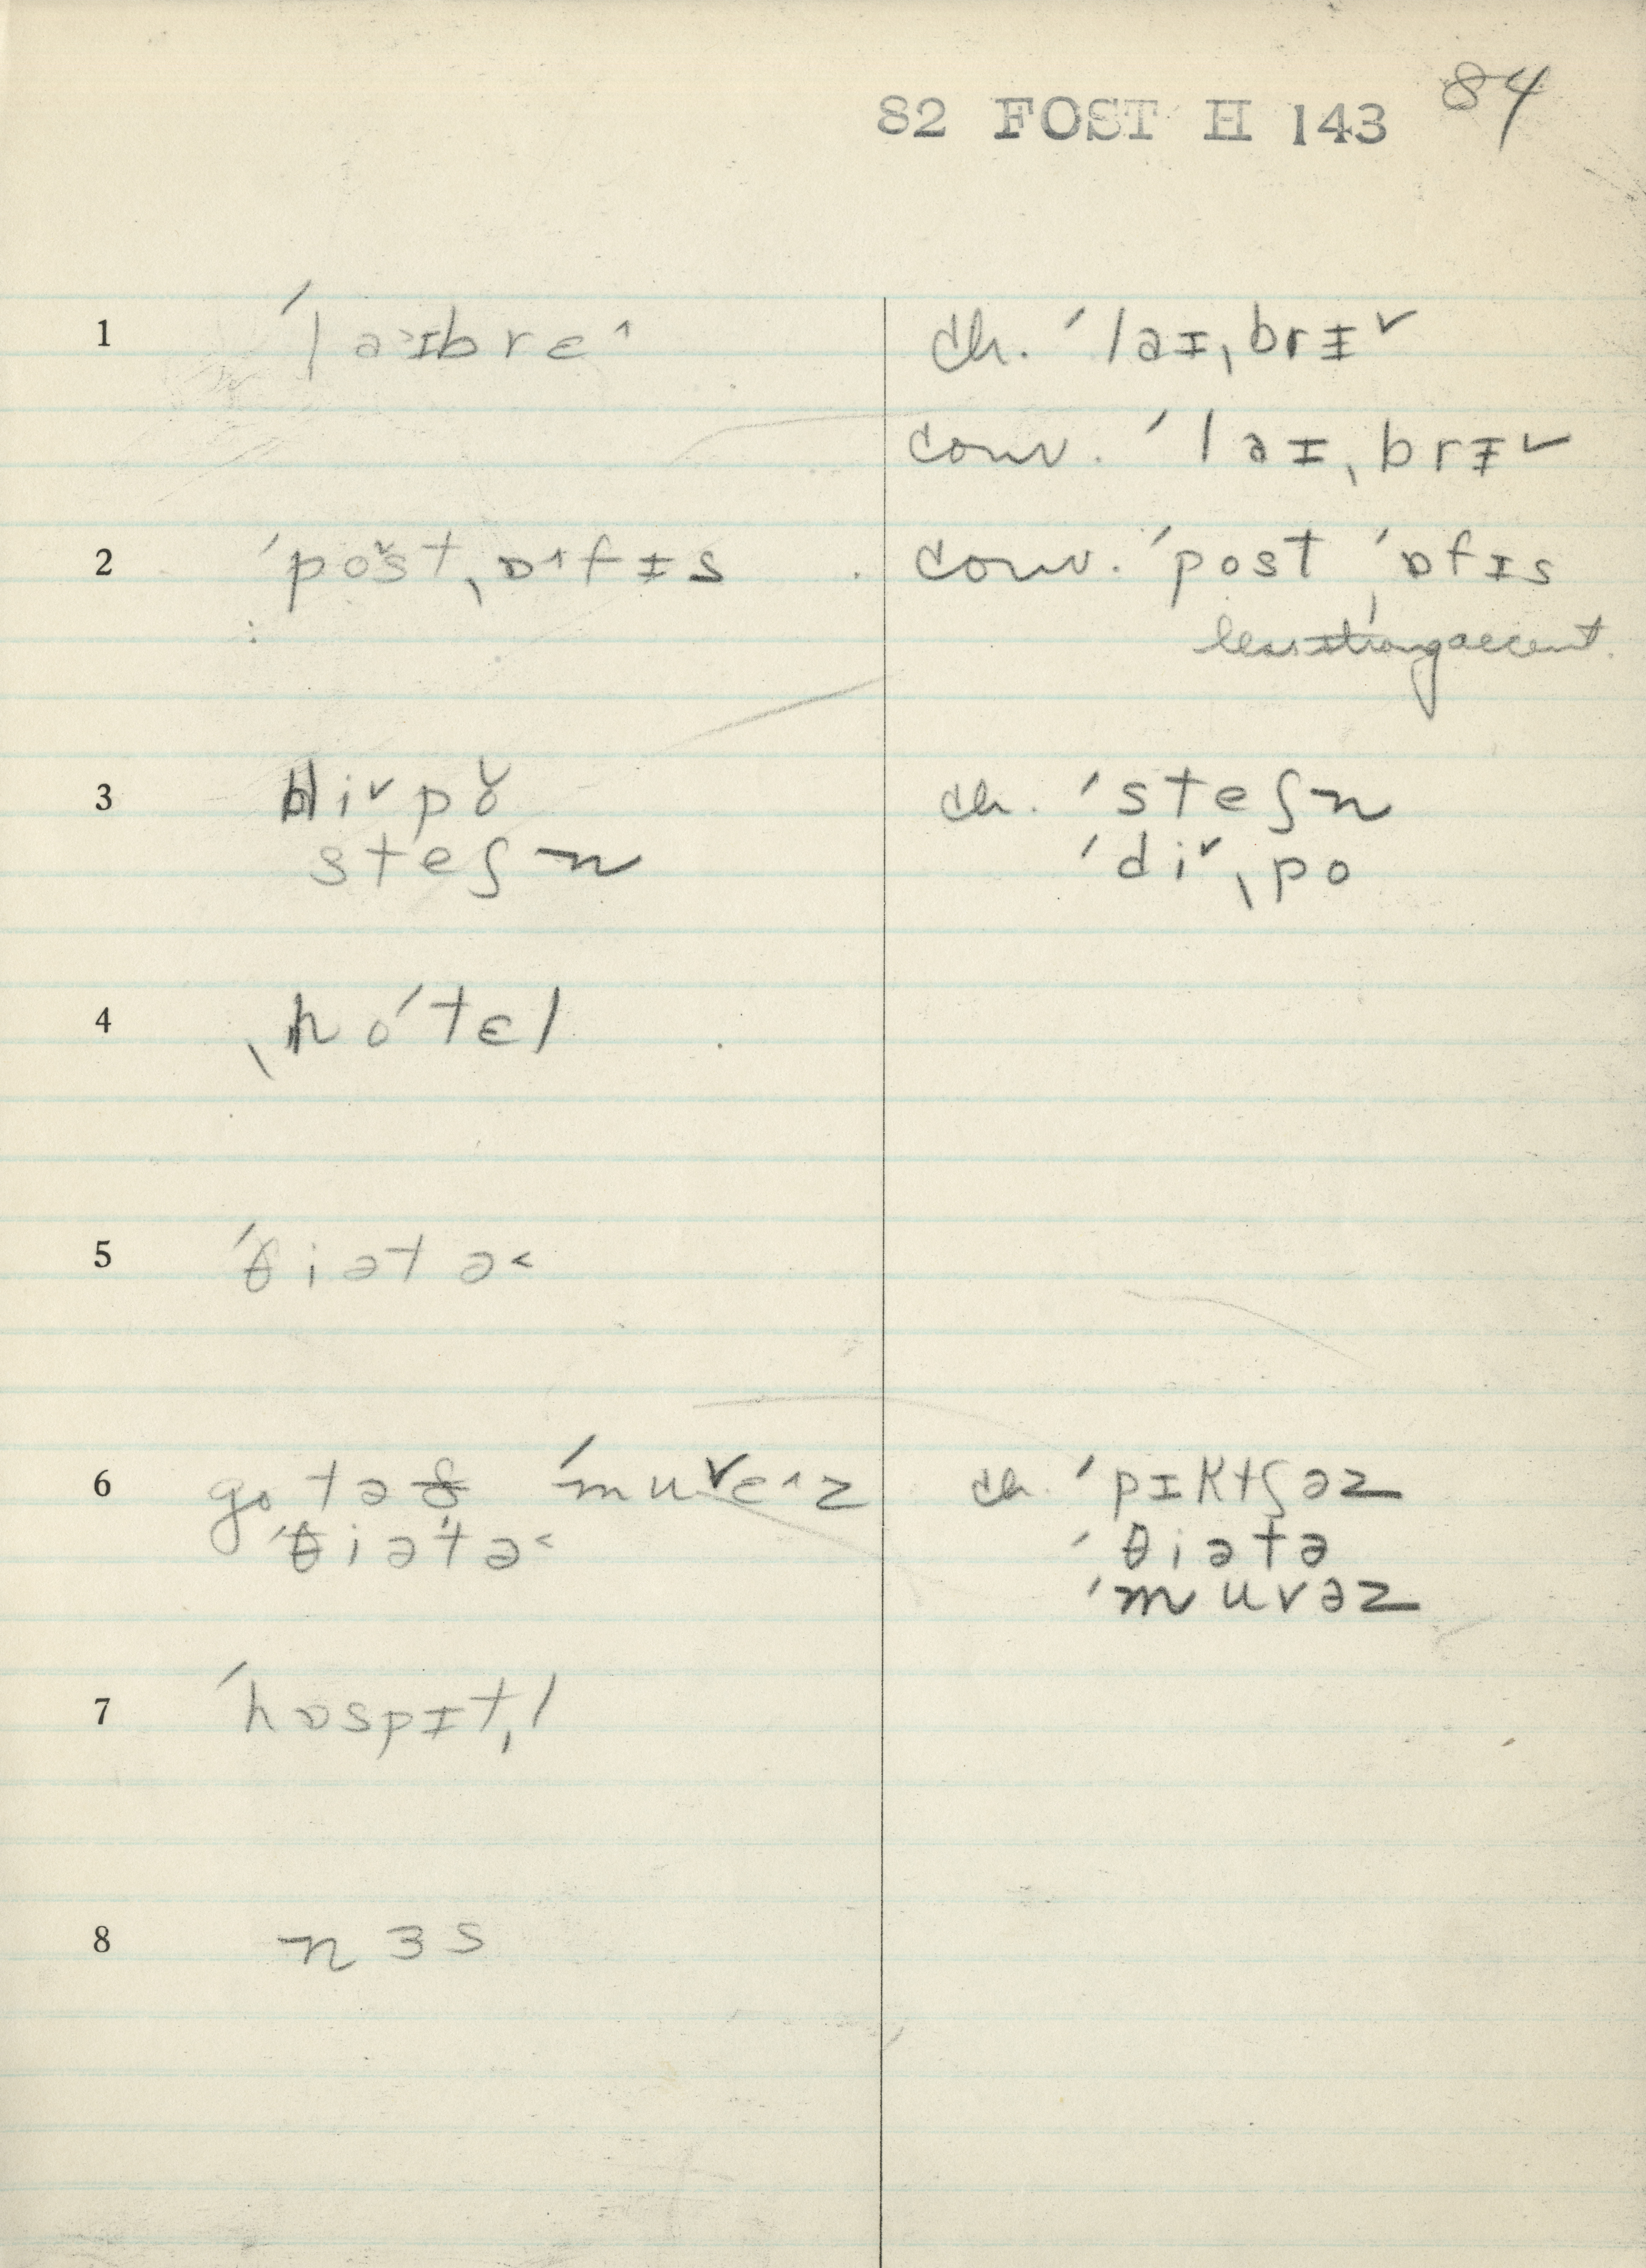 82 FOST H 143 84
1 ˈlaɪbrɛ^ ch. ˈlaɪˌbrɪ˅
conv. ˈlaɪˌbrɪ˅
2 ˈpo˅stˌɒ^fɪs conv. ˈpost ˈɒfɪs
less strong accent.
3 di˅po˅ ch. ˈsteʃn
steʃn ˈdi˅ˌpo
4 ˌhoˈtɛl
5 ˈθiətə<
6 go tə ðə ˈmuvɛ^z ch. ˈpɪktʃəz
ˈθiətə< ˈθiətə
ˈmuvəz
7 ˈhɒspɪtl̩
8 nɜs